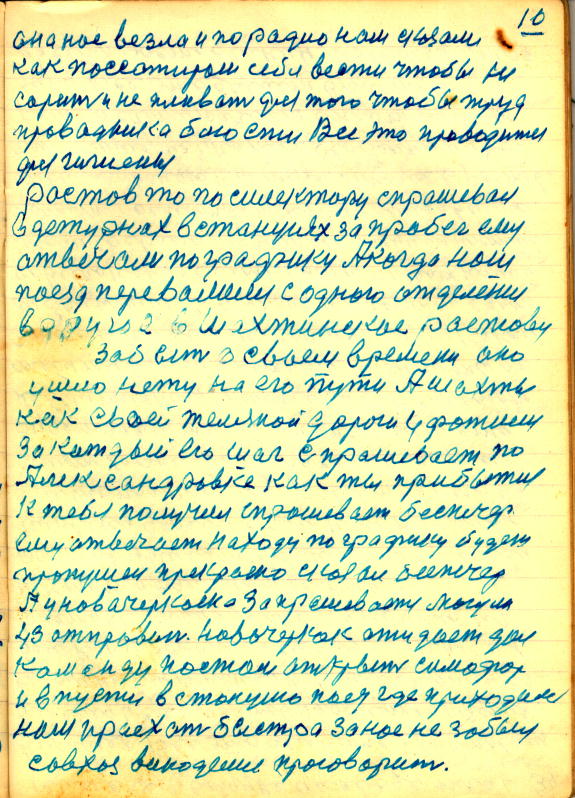 10
она нас везла и по радио нам сказали
как поссажирам себя вести чтобы ни
сорит и не пливат для того чтобы труд
провадника бюсти Все это проводится
для гигиены
растов то по силектору спрашевал
в детурнах в станцыях за пробег ему
отвечали по графику А когда наш
поезд перевалили с одного отделения
в другое в Шахтинское растовы
забыли о своем времени оно
ушло нету на его пути А шахты
как своей желязной дороги
за каждый его шаг спрашевает по
Александровке как ты прибытие
к тебя получил спрошевает беспечер
ему отвечает находу по графику будет
пропушен прекрасно сказал беспечер
А у новачеркаска запрашевает могу ли
43 отправит. новочеркак эти дает дал
команду постам открыт симафор
и впусти в станцию поезд где приходилос
нам приехат быстра за нас не забыли
совхоз виноделие проговорит.